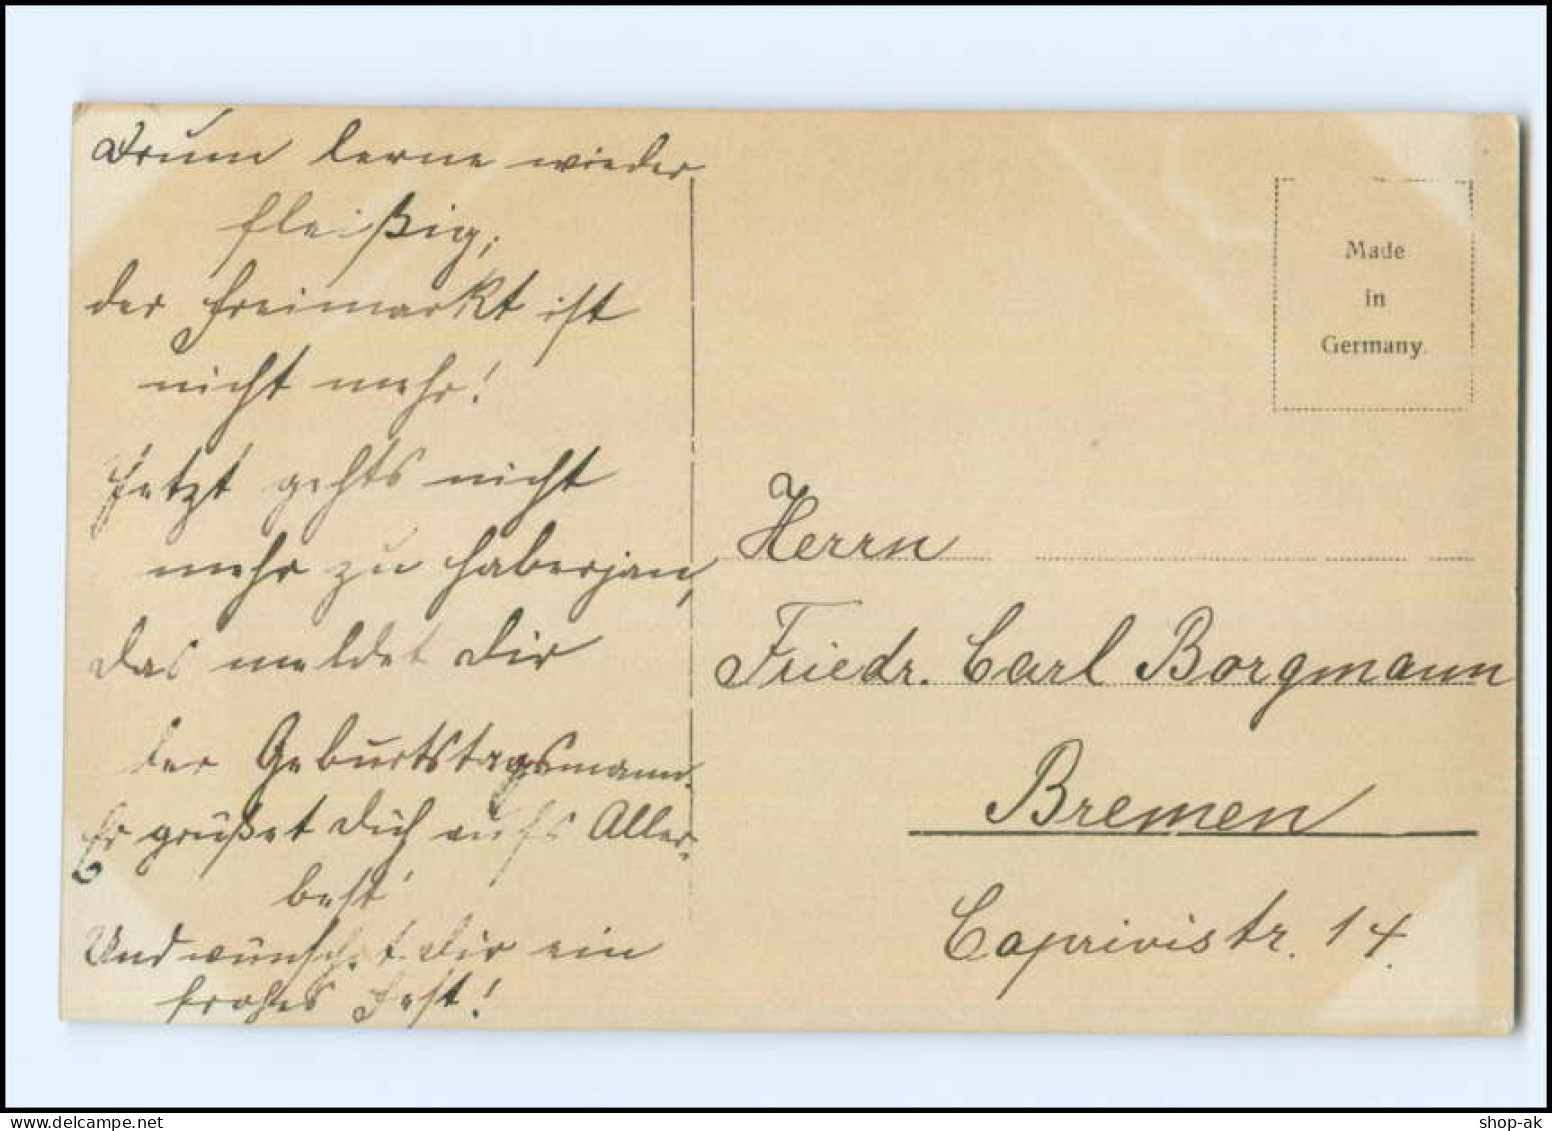 Drum lerne wieder
fleißig,
der Freimarkt ist
nicht mehr!
Jetzt gehts nicht
mehr zu Haberjan,
das meldet Dir
der Geburtstagsmann.
Er grüßet Dich aufs Aller-
best'
Und wünschet Dir ein
frohes Fest!
Made
in
Germany.
Herrn
Friedr. Carl Borgmann
Bremen
Caprivistr. 14.
shop-ak